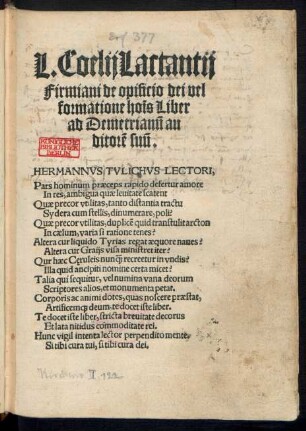 Bvf 377
L. Coelij Lactantij
Firmiani de opificio dei vel
formatione hoīs Liber
ad Demetrianū au
ditorē suū.
KÖNIGLICHE
BIBLIOTHEK
BERLIN
HERMANNVS TVLICHVS LECTORI,
Pars hominum præceps rapido defertur amore
In res, ambigua quæ leuitate scatent
Quæ precor vtilitas, tanto distantia tractu
Sydera cum stellis, dinumerare, poli?
Quæ precor vtilitas, duplicē quid transtulit arcton
In cælum, varia si ratione tenes?
Altera cur liquido Tyrias regat æquore naues?
Altera cur Graijs visa ministret iter?
Cur hæc Cęruleis nunq̄ recreetur in vndis?
Illa quid ancipiti nomine certa micet?
Talia qui sequitur, vel numina vana deorum
Scriptores alios, et monumenta petat.
Corporis ac animi dotes, quas noscere præstat,
Artificemq deum te docet iste liber.
Te docet iste liber, stricta breuitate decorus
Et lata nitidus commoditate rei.
Hunc vigil intenta lector perpendito mente,
Si tibi cura tui, si tibi cura dei.
II, 122